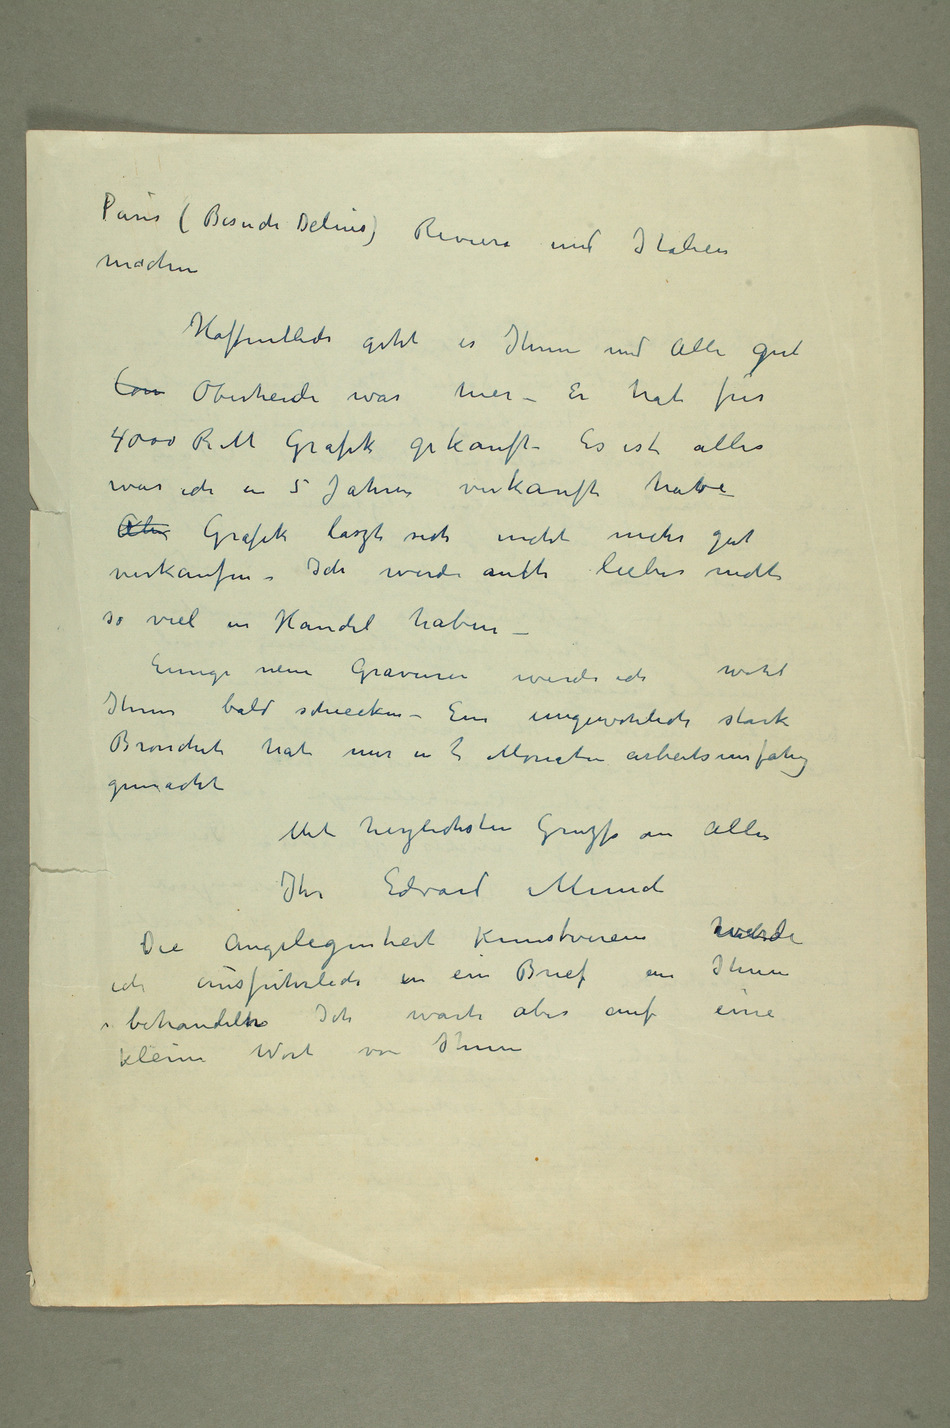 Paris (Besuch Delius) Riviera und Italien
machen
Hoffentlich geht es Ihnen und Alle gut
Oberheide war hier – Er hat für
4000 R.M Grafik gekauft – Es ist alles
was ich in 5 Jahren verkauft habe
Grafik laszt sich nicht mehr gut
verkaufen – Ich werde auch lieber nicht
so viel in Handel haben –
Einige neue Gravuren werde ich wohl
Ihnen bald schicken – Ein ungewohnlich stark
Bronchit hat mir in 2 Monaten arbeitsunfahig
gemacht
Mit herzlichsten Gruss an Alle
Ihr Edvard Munch
Die Angelegenheit Kunstverein werde
ich ausfuhrlich in ein Brief an Ihnen
behandeln Ich warte aber auf eine
kleine Wort von Ihnen